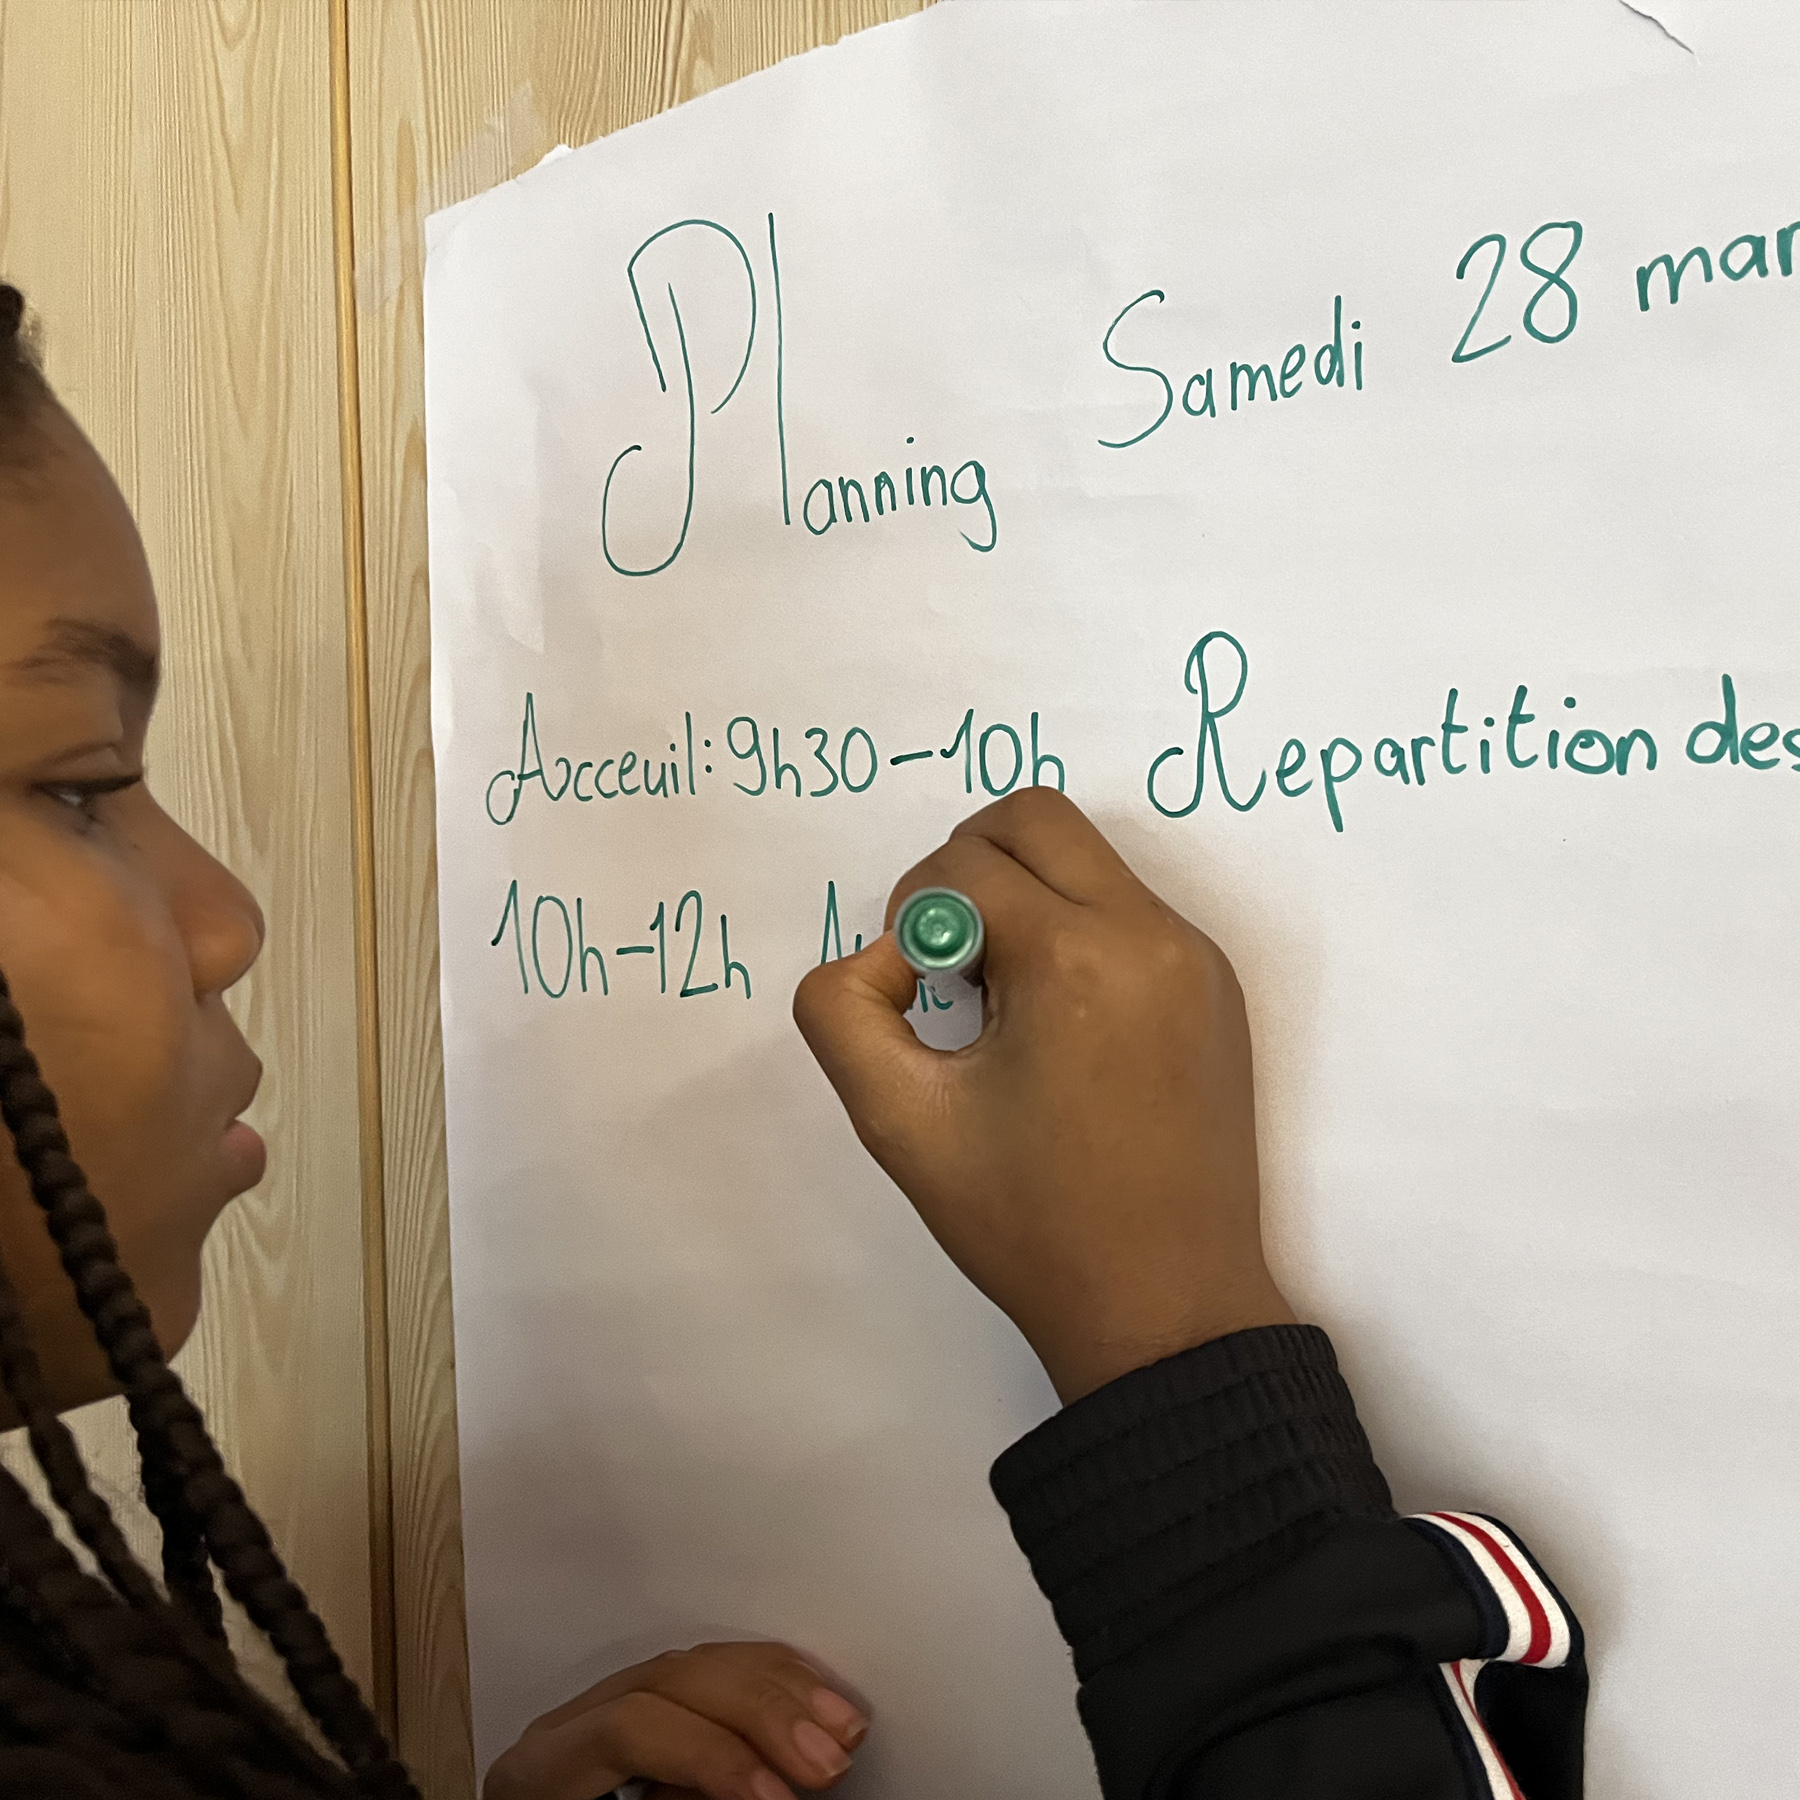 Planning Samedi 28 mar
Acceuil: 9h30-10h Repartition des
10h-12h